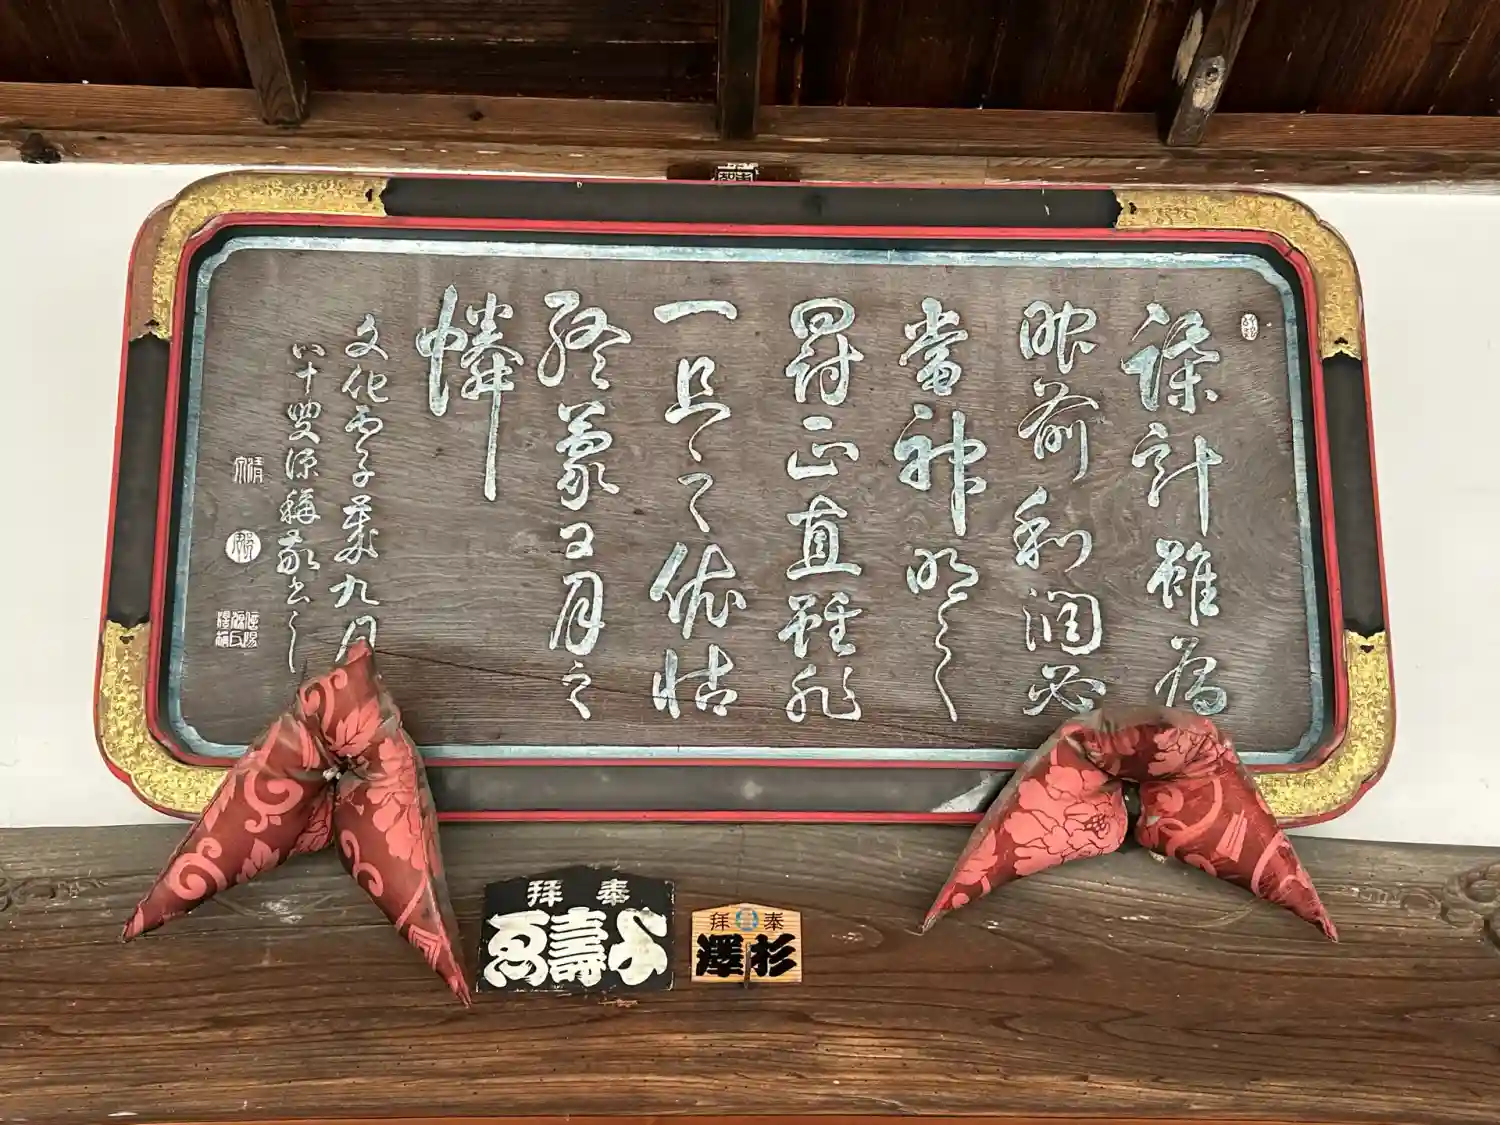 謀計雖為
眼前利潤必
當神明之
罰正直雖非
一旦之依怙
終蒙日月之
憐
文化丙子歳九月
八十叟源稱書之
奉拝
壽
奉拝
杉澤